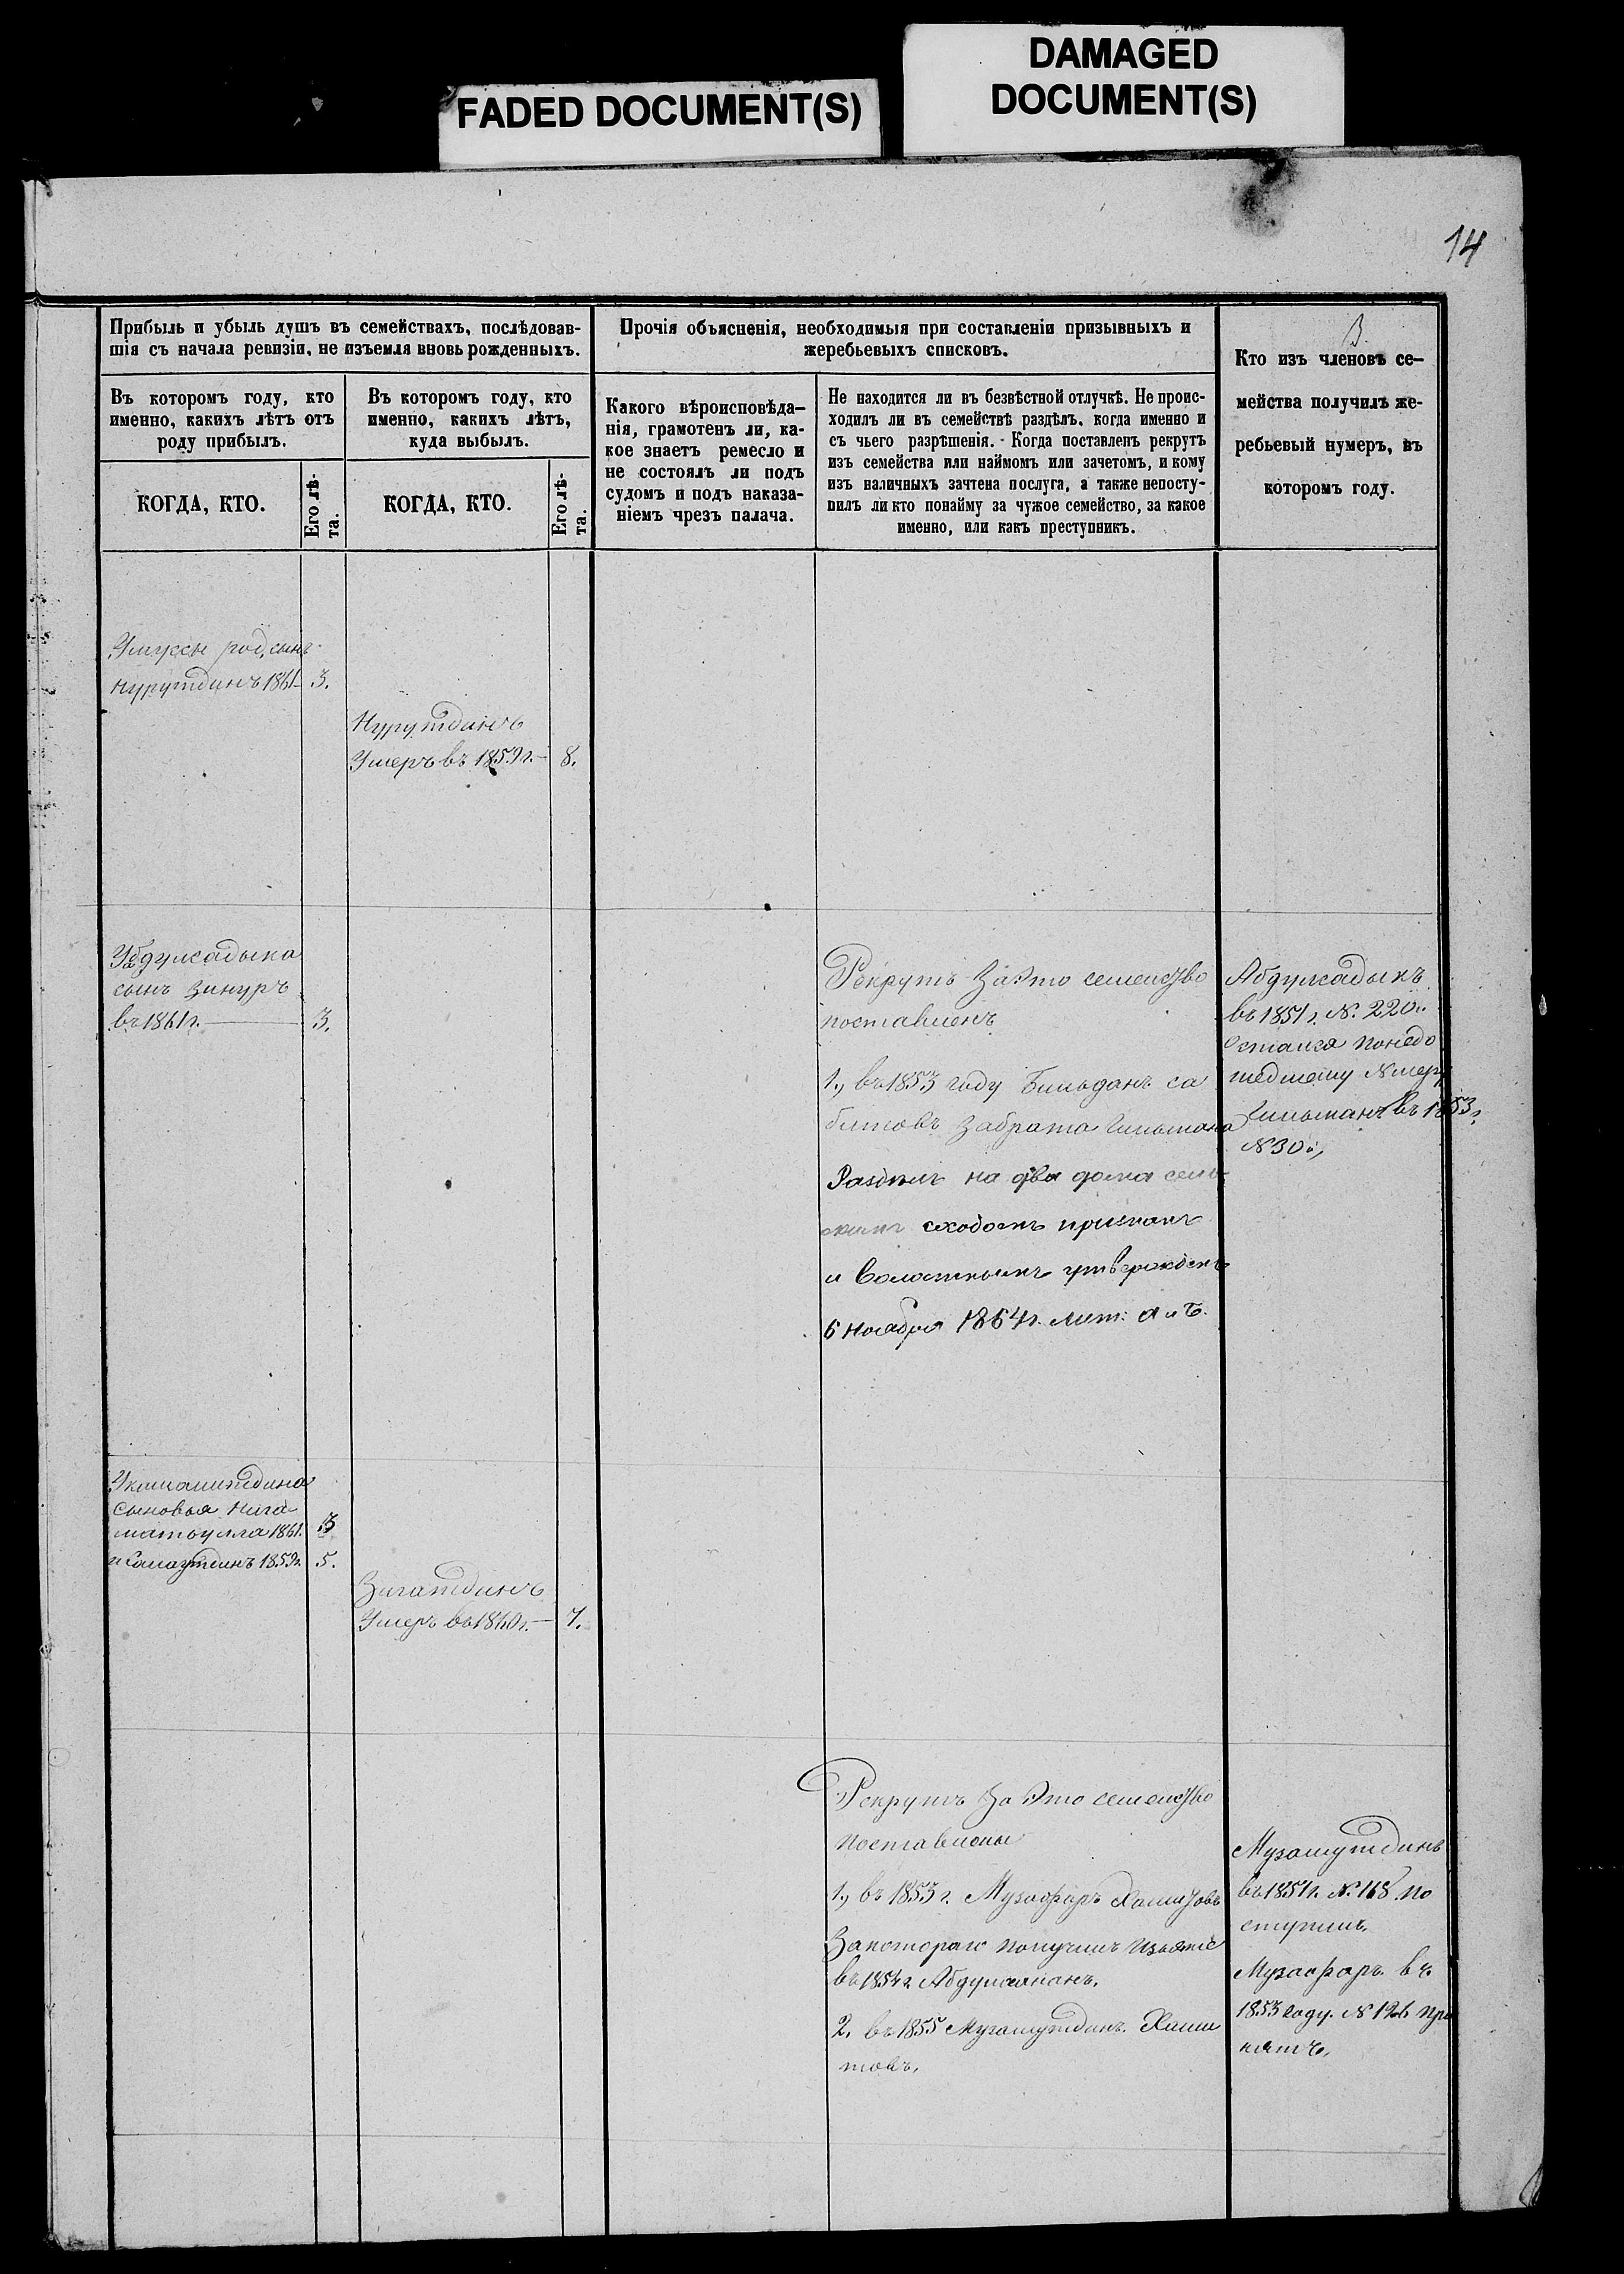 FADED DOCUMENT(S)
DAMAGED
DOCUMENT(S)
14
Прибыль и убыль душъ въ семействахъ, послѣдовав-
шія съ начала ревизіи, не изъемля вновь рожденныхъ.
Въ которомъ году, кто
именно, какихъ лѣтъ отъ
роду прибылъ.
КОГДА, КТО.
Его лѣ-
та.
Въ которомъ году, кто
именно, какихъ лѣтъ,
куда выбылъ.
КОГДА, КТО.
Его лѣ-
та.
Прочія объясненія, необходимыя при составленіи призывныхъ и
жеребьевыхъ списковъ.
Какого вѣроисповѣда-
нія, грамотенъ ли, ка-
кое знаетъ ремесло и
не состоялъ ли подъ
судомъ и подъ наказа-
ніемъ чрезъ палача.
Не находится ли въ безвѣстной отлучкѣ. Не проис-
ходилъ ли въ семействѣ раздѣлъ, когда именно и
съ чьего разрѣшенія. Когда поставленъ рекрутъ
изъ семейства или наймомъ или зачетомъ, и кому
изъ наличныхъ зачтена послуга, а также непосту-
пилъ ли кто понайму за чужое семейство, за какое
именно, или какъ преступникъ.
3.
Кто изъ членовъ се-
мейства получилъ же-
ребьевый нумеръ, въ
которомъ году.
Умуссы род. сынъ
Нурутдинъ 1861 3.
Нурутдинъ
Умеръ въ 1859 г. 8.
Уабдулсадыка
сынъ Зинуръ
въ 1861 г. 3.
Рекрутъ За Это семейство
поставленъ
1., въ 1853 году Бильданъ са
битовъ За брата Гильмана
Раздѣлъ на два дома сель
скимъ сходомъ признанъ
и Волостнымъ утвержденъ
6 Ноября 1864 г. лит: А и Б.
Абдулсадыкъ
въ 1851 г. №. 220.
Остался Понедо
шедшему №меру
Гильманъ въ 1853 г.
№ 30.,
сыновья Нига
матоулла 1861. 3
1859 г. 5.
Зигатдинъ
Умеръ въ 1860 г. 7.
Рекрутъ За Это семейство
Поставлены
1., въ 1853 г. Музафаръ Хамитовъ
За котораго получилъ изъятіе
въ 1854 г.
2. въ 1855 Хами
товъ.
въ 1851 г. №. 168 По
ступилъ.
Музафаръ въ
1853 году. № 126 при
нятъ.